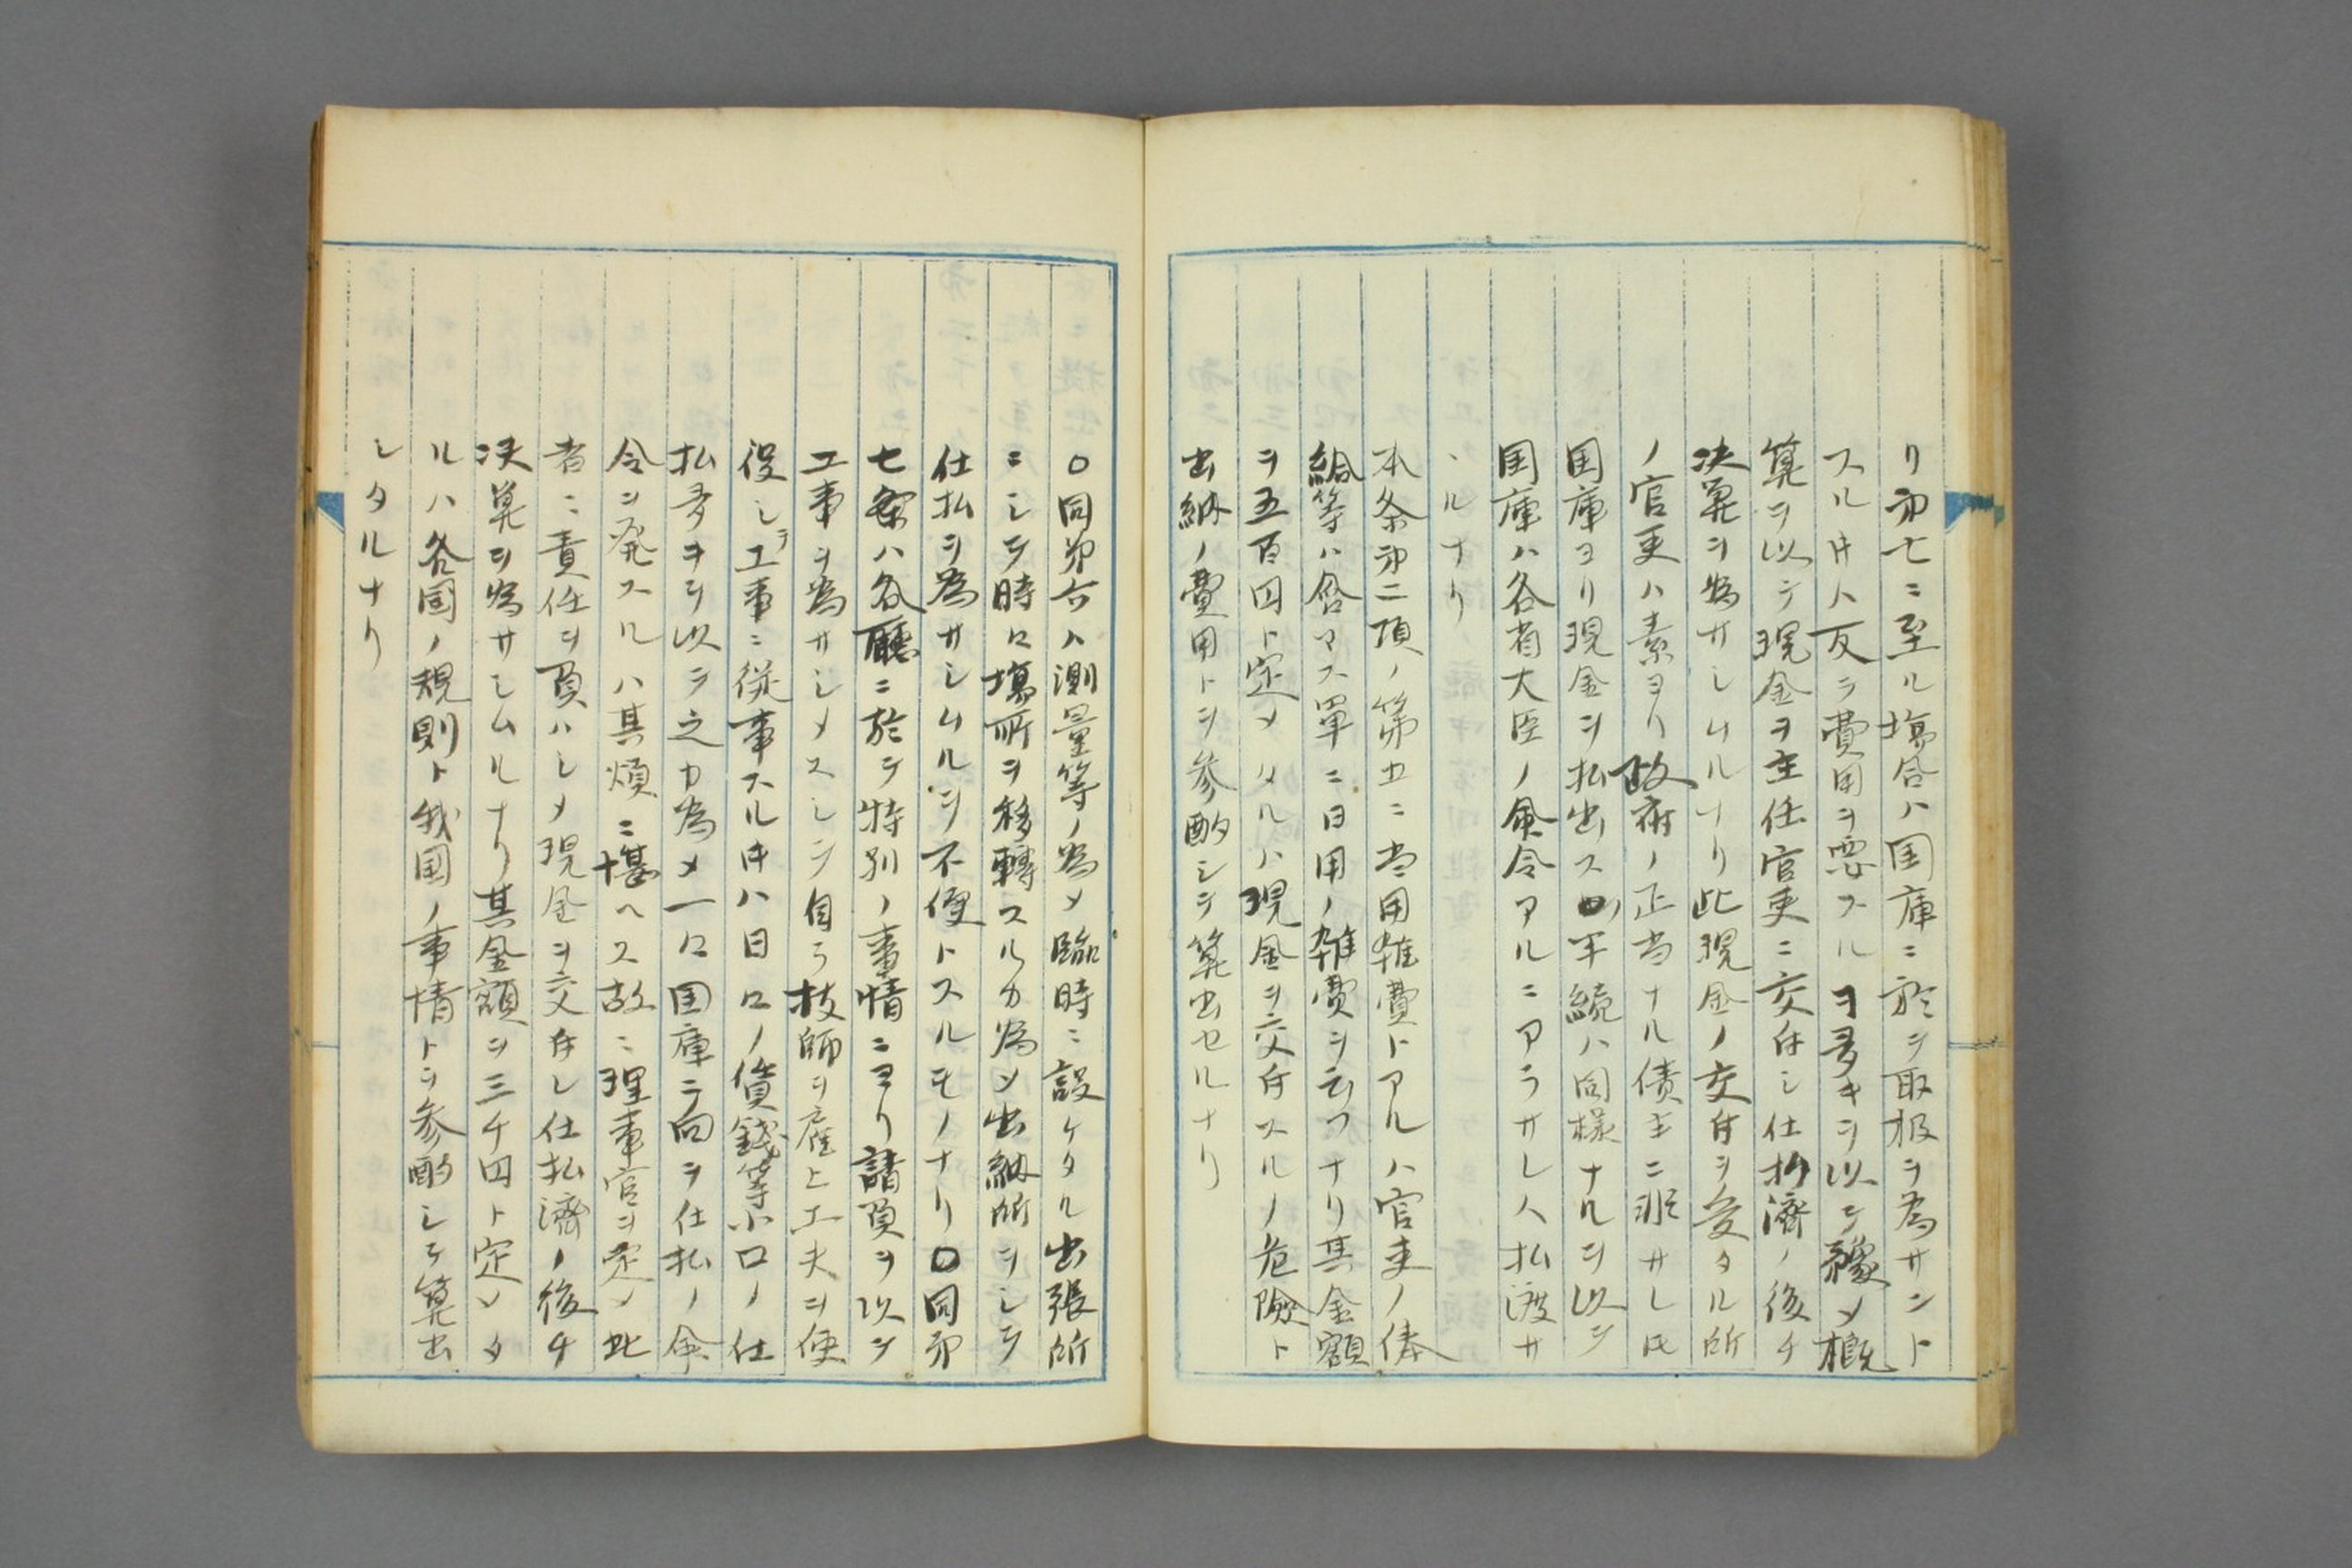 リ第七ニ至ル塲合ハ国庫ニ於テ取扱ヲ為サント
スル時ハ反テ費用ヲ要スルヿ多キヲ以テ豫メ概
算ヲ以テ現金ヲ主任官吏ニ交付シ仕払済ノ後チ
决算ヲ為サシムルナリ此現金ノ交付ヲ受タル所
ノ官吏ハ素ヨリ政府ノ正当ナル債主ニ非サレ圧
国庫ヨリ現金ヲ払出スノ手続ハ同様ナルヲ以テ
国庫ハ各省大臣ノ命令アルニアラサレハ払渡サ
ヽルナリ
本条第二項ノ第五ニ常用雑費トアルハ官吏ノ俸
給等ハ含マス単ニ日用ノ雑費ヲ云フナリ其金額
ヲ五百円ト定メタルハ現金ヲ交付スルノ危険ト
出納ノ費用トヲ参酌シテ算出セルナリ
〇同第六ハ測量等ノ為メ臨時ニ設ケタル出張所
ニシテ時々塲所ヲ移轉スルカ為メ出納所ヲシテ
仕払ヲ為サシムルヲ不便トスルモノナリ〇同第
七案ハ各廳ニ於テ特別ノ事情ニヨリ請負ヲ以テ
工事ヲ為サシメスシテ自ラ技師ヲ雇上工夫ヲ使
役シテ工事ニ従事スル時ハ日々ノ賃錢等小口ノ仕
払多キヲ以テ之カ為メ一々国庫ニ向テ仕払ノ命
令ヲ発スルハ其煩ニ堪ヘス故ニ理事官ヲ定メ此
者ニ責任ヲ負ハシメ現金ヲ交付シ仕払済ノ後チ
决算ヲ為サシムルナリ其金額ヲ三千円ト定メタ
ルハ各国ノ規則ト我国ノ事情トヲ参酌シテ算出
シタルナリ